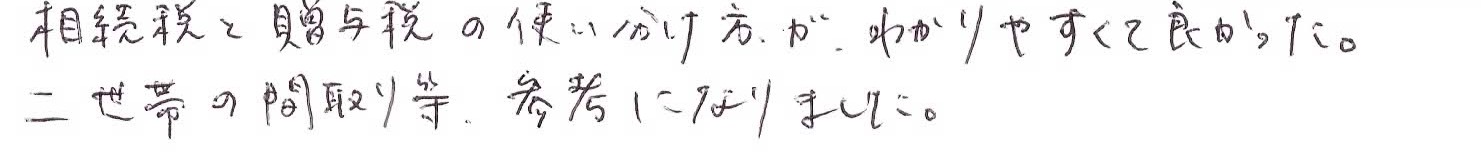 相続税と贈与税の使い分け方が、わかりやすくて良かった。
二世帯の間取り等、参考になりました。